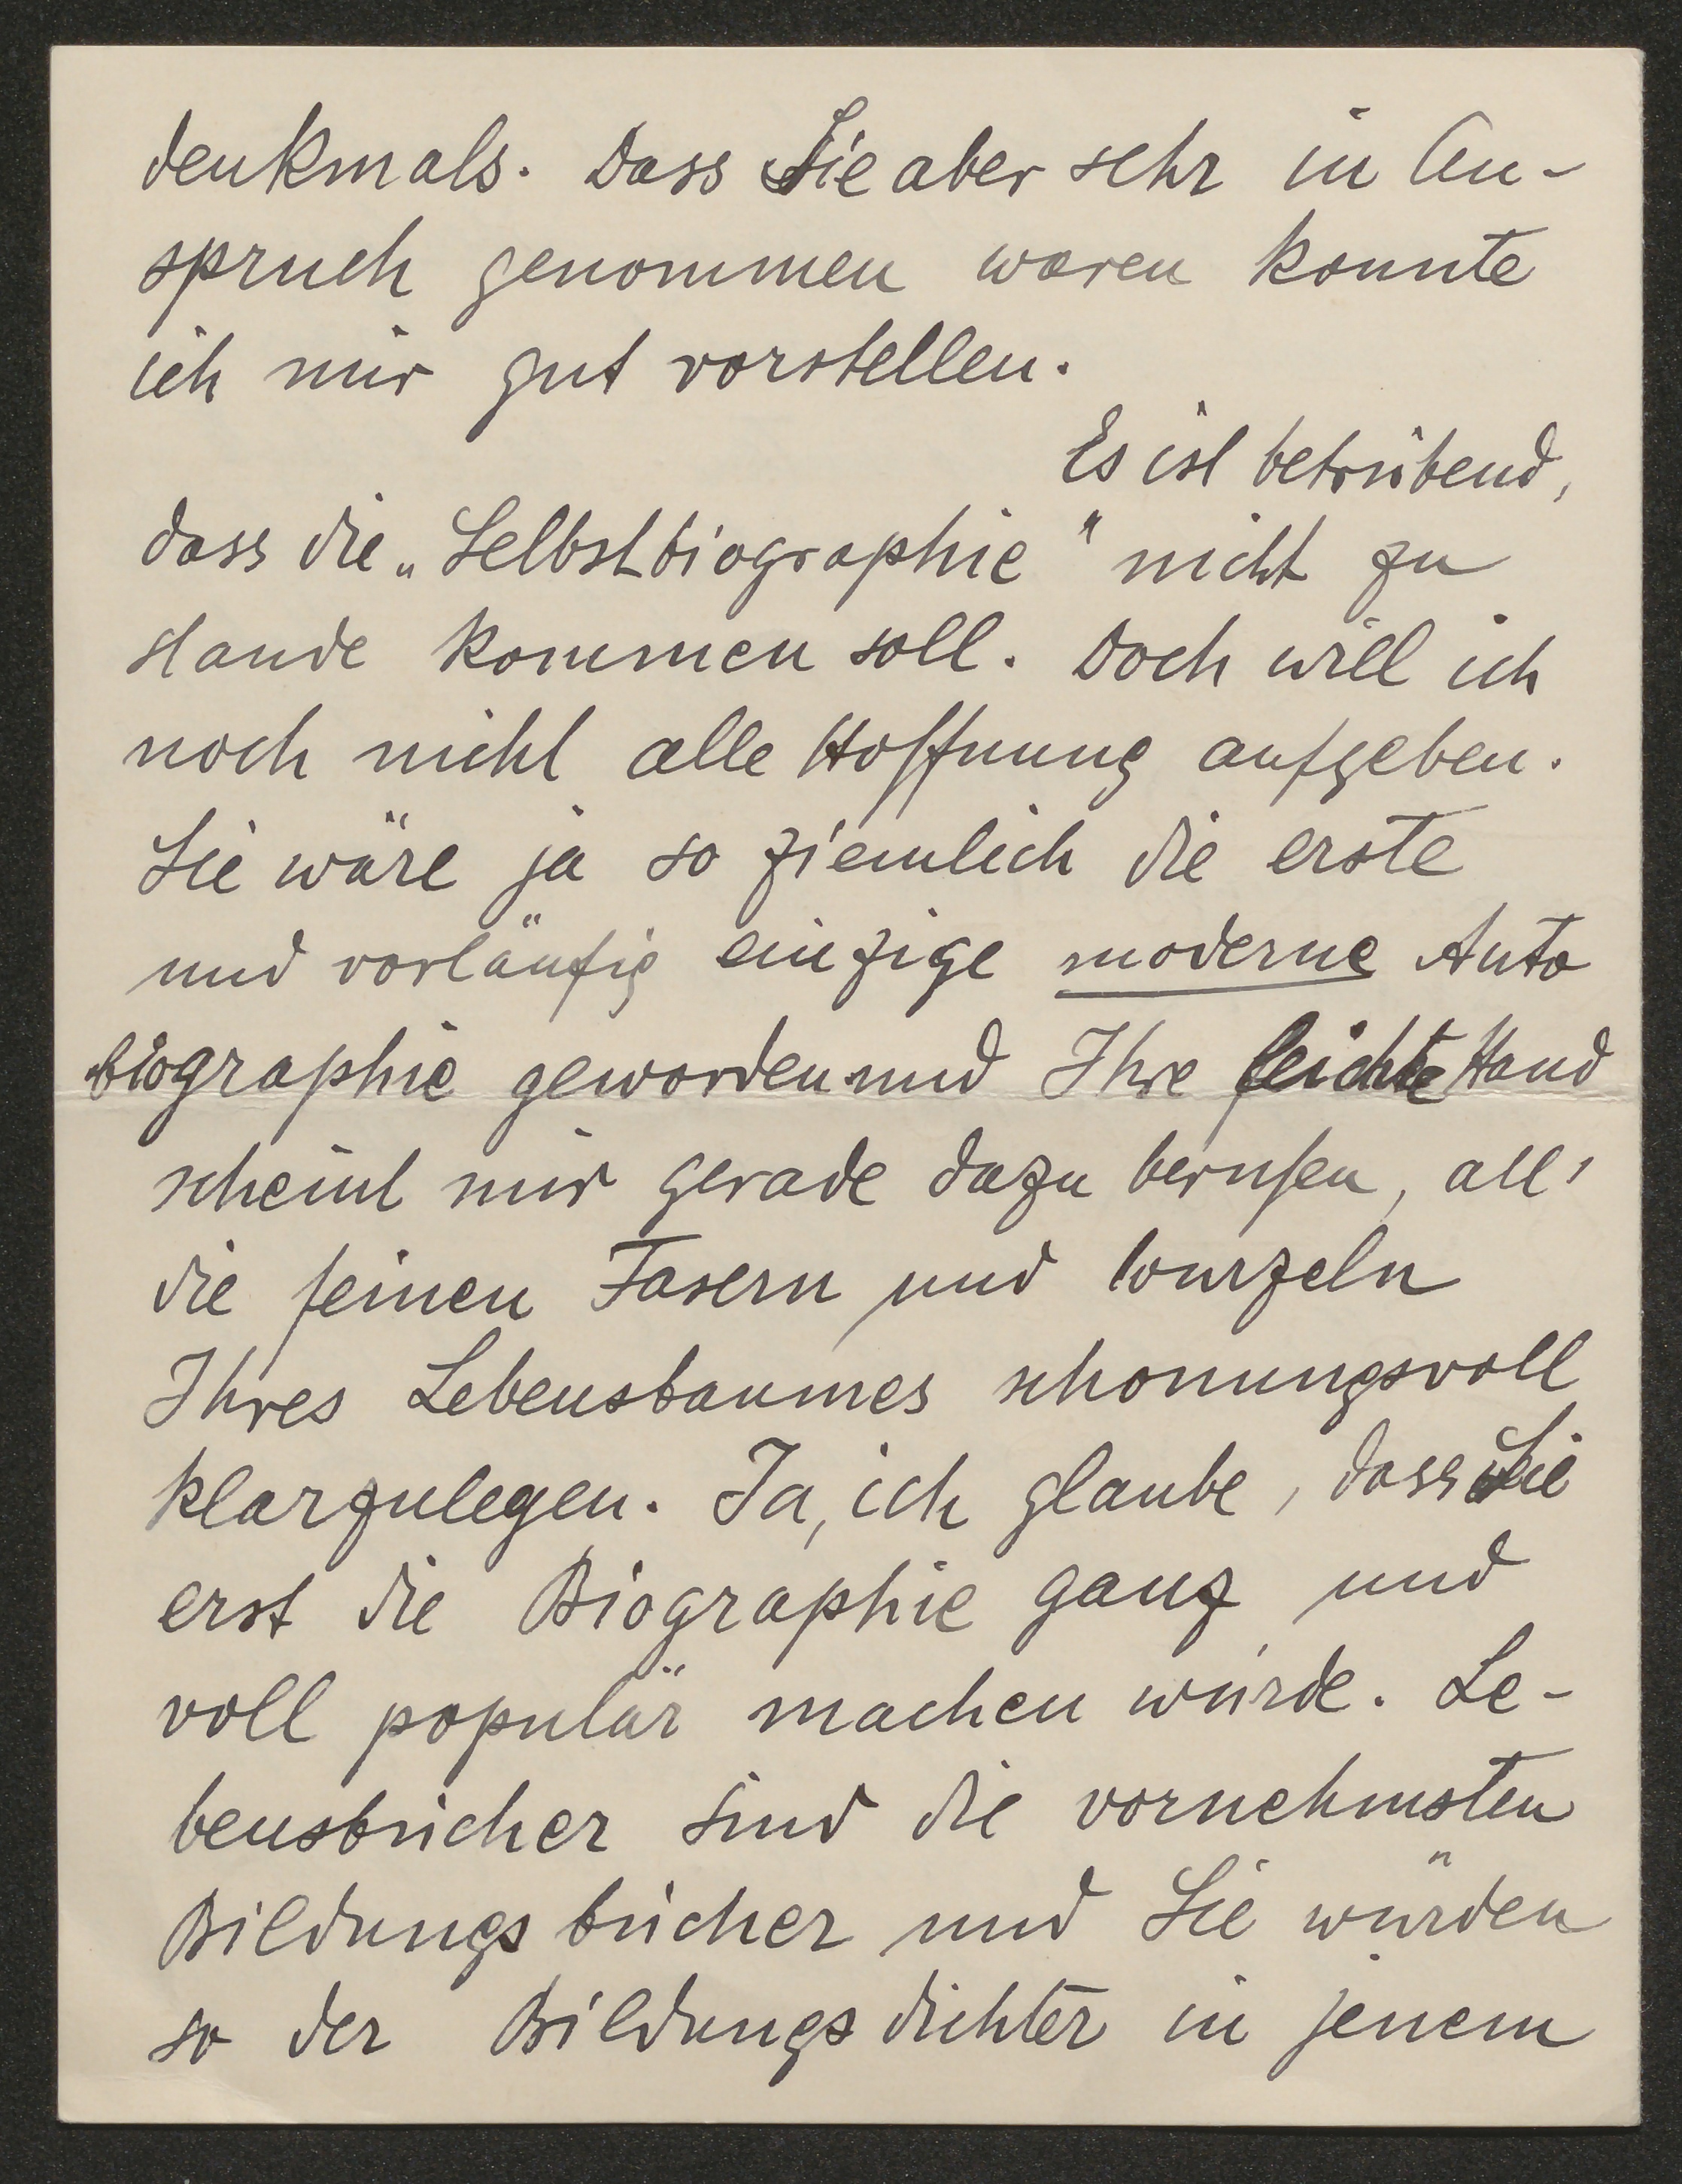 denkmals. Dass Sie aber sehr in An-
spruch genommen waren konnte
ich mir gut vorstellen.
Es ist betrübend,
dass die „Selbstbiographie" nicht zu
stande kommen soll. Doch will ich
noch nicht alle Hoffnung aufgeben.
Sie wäre ja so ziemlich die erste
und vorläufig einzige moderne Auto
biographie geworden und Ihre leichte Hand
scheint mir gerade dazu berufen, all'
die feinen Fasern und Wurzeln
Ihres Lebensbaumes schonungsvoll
klarzulegen. Ja, ich glaube, dass Sie
erst die Biographie ganz und
voll populär machen würde. Le-
bensbücher sind die vornehmsten
Bildungsbücher und Sie würden
so der Bildungsdichter in jenem